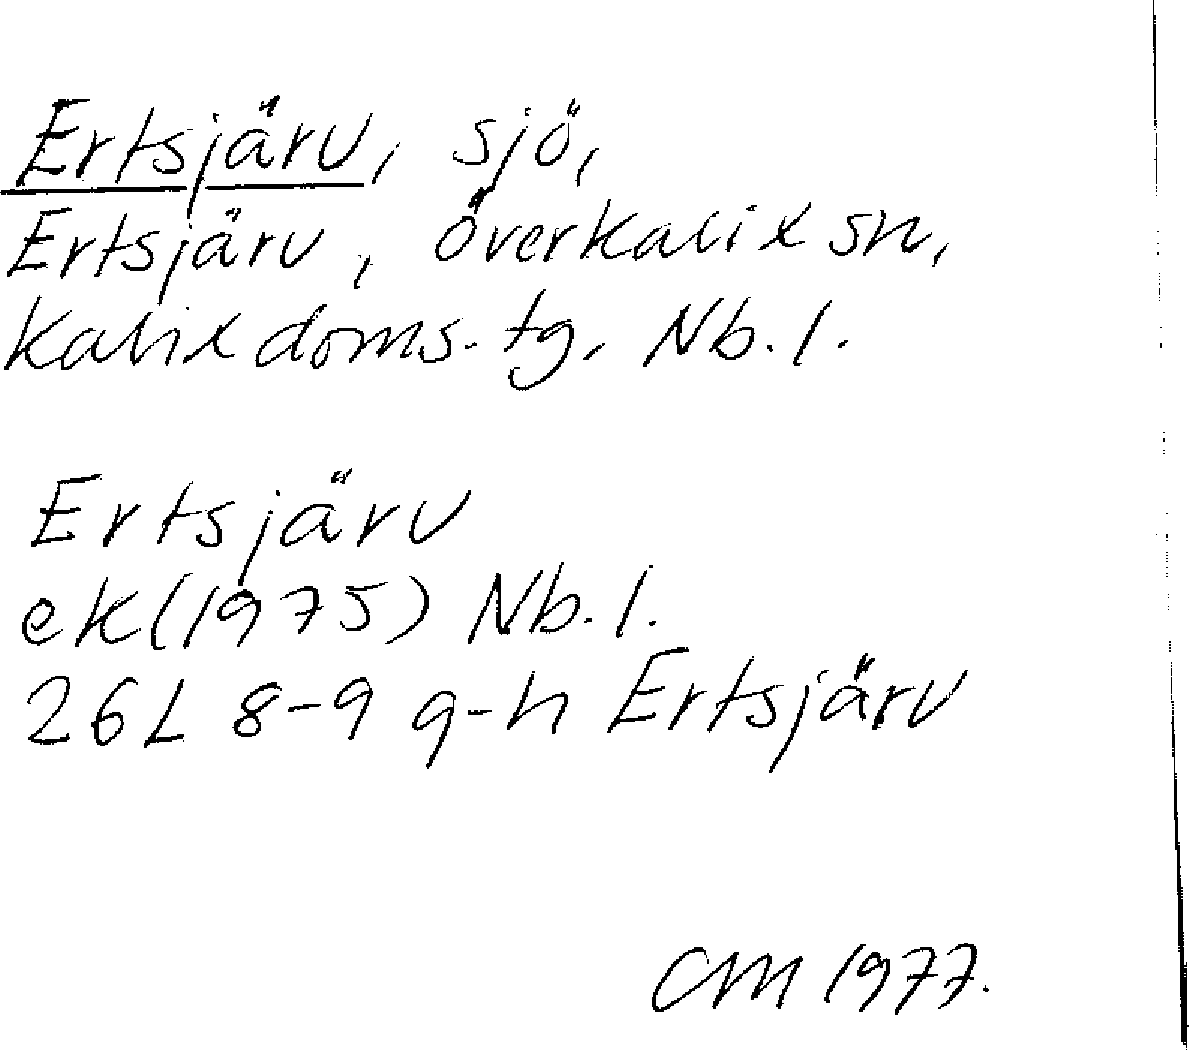 Ertsjärv, sjö,
Ertsjärv, Överkalix sn,
Kalix doms. tg. Nb. l.
Ertsjärv
ek (1975) Nb. l.
26L 8-9 g-h Ertsjärv
CM 1977.